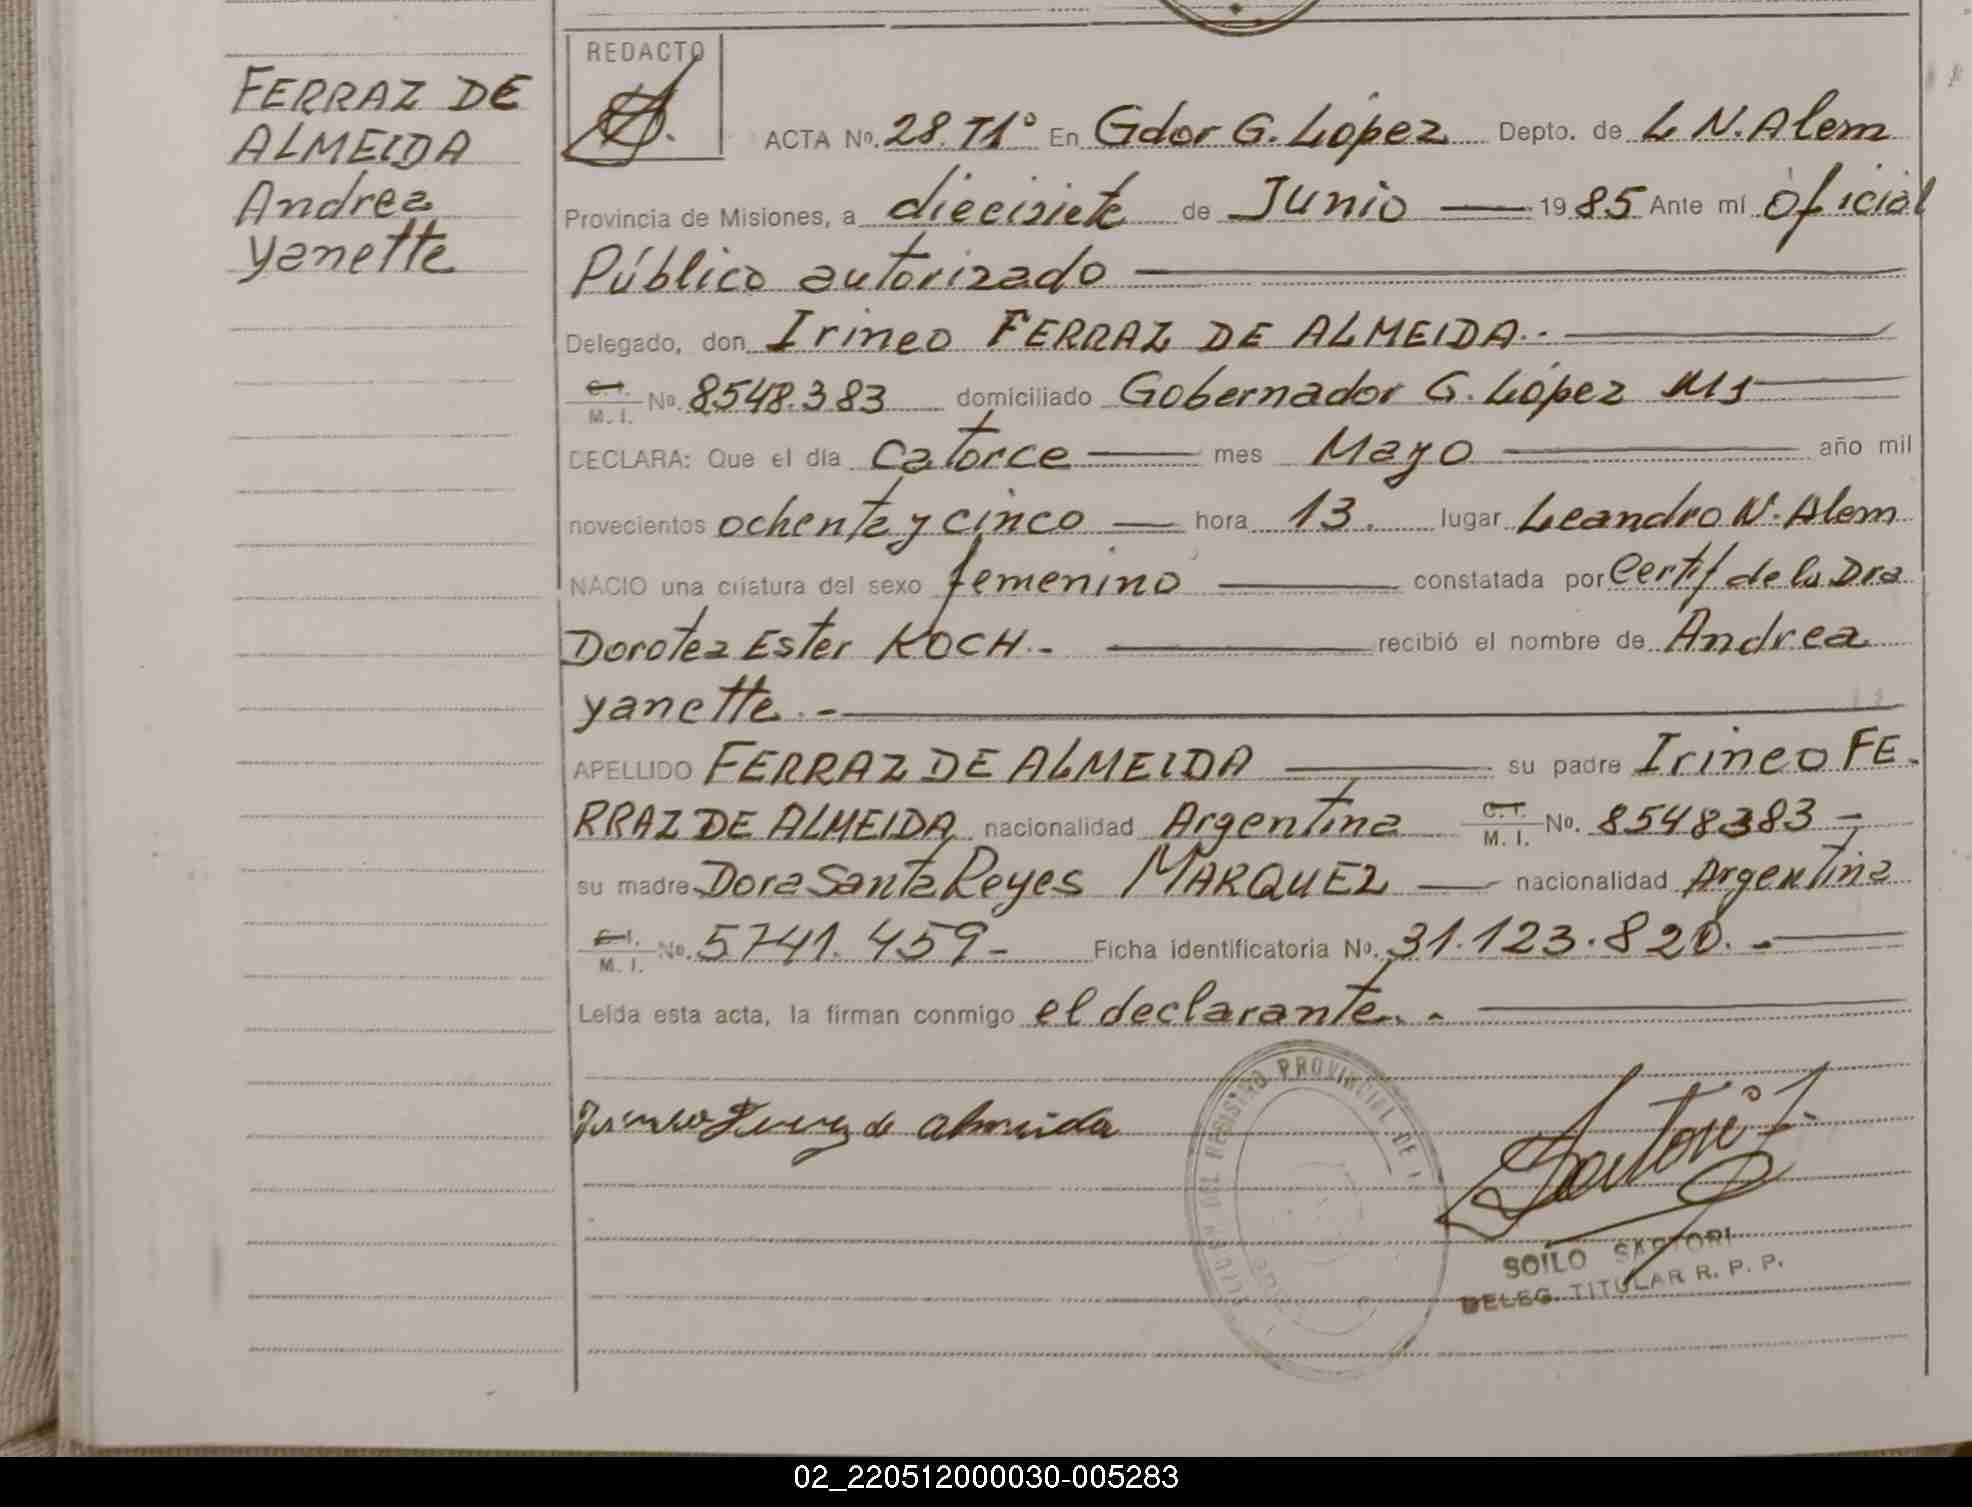 FERRAZ DE
ALMEIDA
Andrea
Yanette
REDACTO
ACTA No. 28. T1° En Gdor G. López Depto. de L N. Alem
Provincia de Misiones, a diecisiete de Junio 1985 Ante mí oficial
Público autorizado
Delegado, don Irineo FERRAZ DE ALMEIDA.-
C.I. / M. I. No. 8548.383 domiciliado Gobernador G. López Ms
DECLARA: Que el día catorce mes Mayo año mil
novecientos ochenta y cinco hora 13. lugar Leandro N. Alem
NACIO una criatura del sexo femenino constatada por Certif de la Dra
Dorotea Ester KOCH.- recibió el nombre de Andrea
Yanette.-
APELLIDO FERRAZ DE ALMEIDA su padre Irineo FE-
RRAZ DE ALMEIDA nacionalidad Argentina C.I. / M. I. No. 8548383-
su madre Dora Santa Reyes MARQUEZ nacionalidad Argentina
C.I. / M. I. No. 5741.459- Ficha identificatoria No. 31.123.820.-
Leída esta acta, la firman conmigo el declarante.-
Irineo Ferraz de Almeida
DEL REGISTRO PROVINCIAL DE
Sartori
SOILO SARTORI
DELEG. TITULAR R. P. P.
02_220512000030-005283